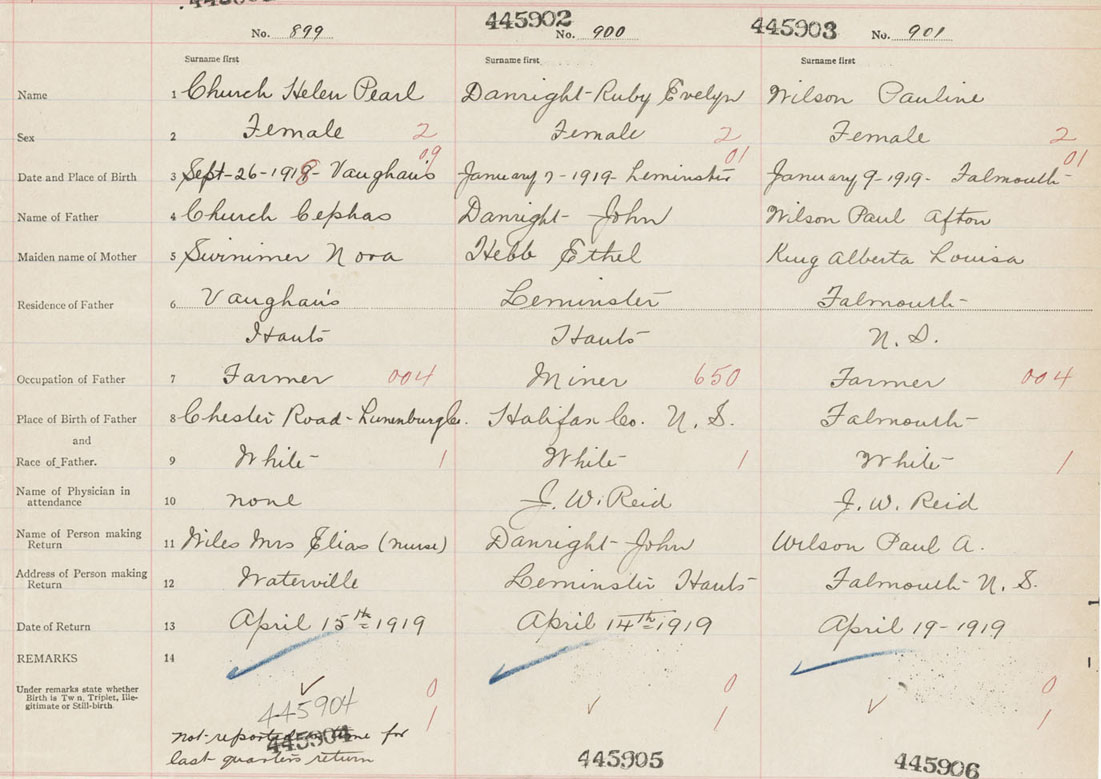 445902 445903
No. 899 No. 900 No. 901
Surname first Surname first Surname first
Name 1 Church Helen Pearl Danright Ruby Evelyn Wilson Pauline
Sex 2 Female 2 Female 2 Female 2
09 01 01
Date and Place of Birth 3 Sept-26-1918- Vaughan's January 7-1919- Leminster January 9-1919- Falmouth
Name of Father 4 Church Cephas Danright John Wilson Paul Afton
Maiden name of Mother 5 Swinimer Nora Hebb Ethel King Alberta Louisa
Residence of Father 6 Vaughan's Leminster Falmouth
Hants Hants N. S.
Occupation of Father 7 Farmer 004 Miner 650 Farmer 004
Place of Birth of Father 8 Chester Road-Lunenburg Co. Halifax Co. N. S. Falmouth
and
Race of Father. 9 White 1 White 1 White 1
Name of Physician in
attendance 10 none J. W. Reid J. W. Reid
Name of Person making
Return 11 Niles Mrs Elias (nurse) Danright John Wilson Paul A.
Address of Person making
Return 12 Waterville Leminster Hants Falmouth N. S.
Date of Return 13 April 15th 1919 April 14th 1919 April 19-1919
REMARKS 14
Under remarks state whether
Birth is Twin, Triplet, Ille-
gitimate or Still-birth
0 0 0
445904 1 1 1
not reported time for
445904 445905 445906
last quarter's return